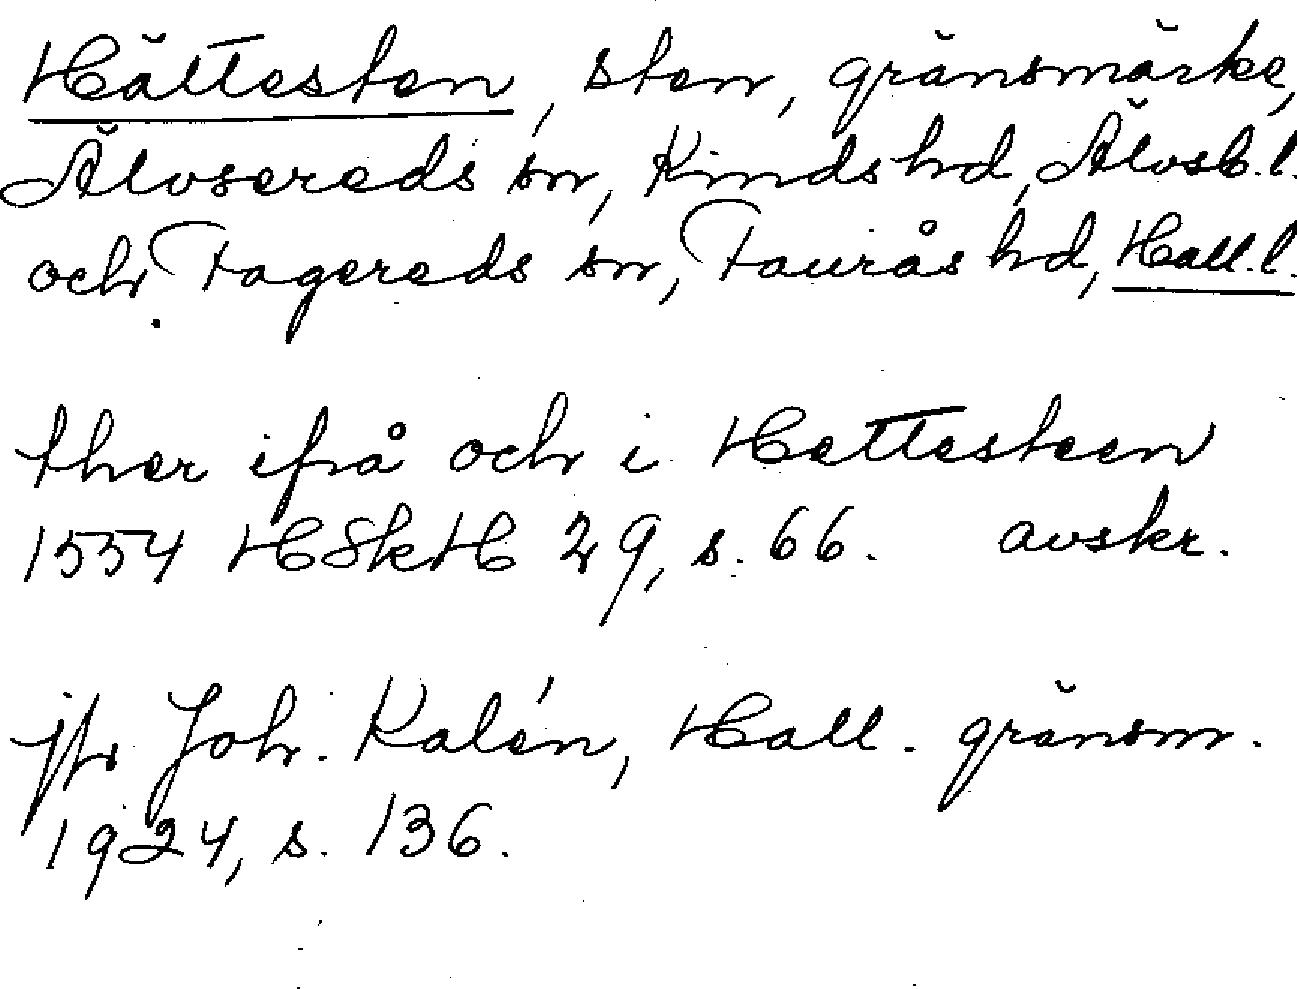 Hättesten, sten, gränsmärke,
Älvsereds sn, Kinds hd, Älvsb. l.
och Fagereds sn, Faurås hd, Hall. l.
ther ifrå och i Hettesteen
1554 HSkH 29, s. 66. avskr.
jfr Joh. Kalén, Hall. gränsm.
1924, s. 136.